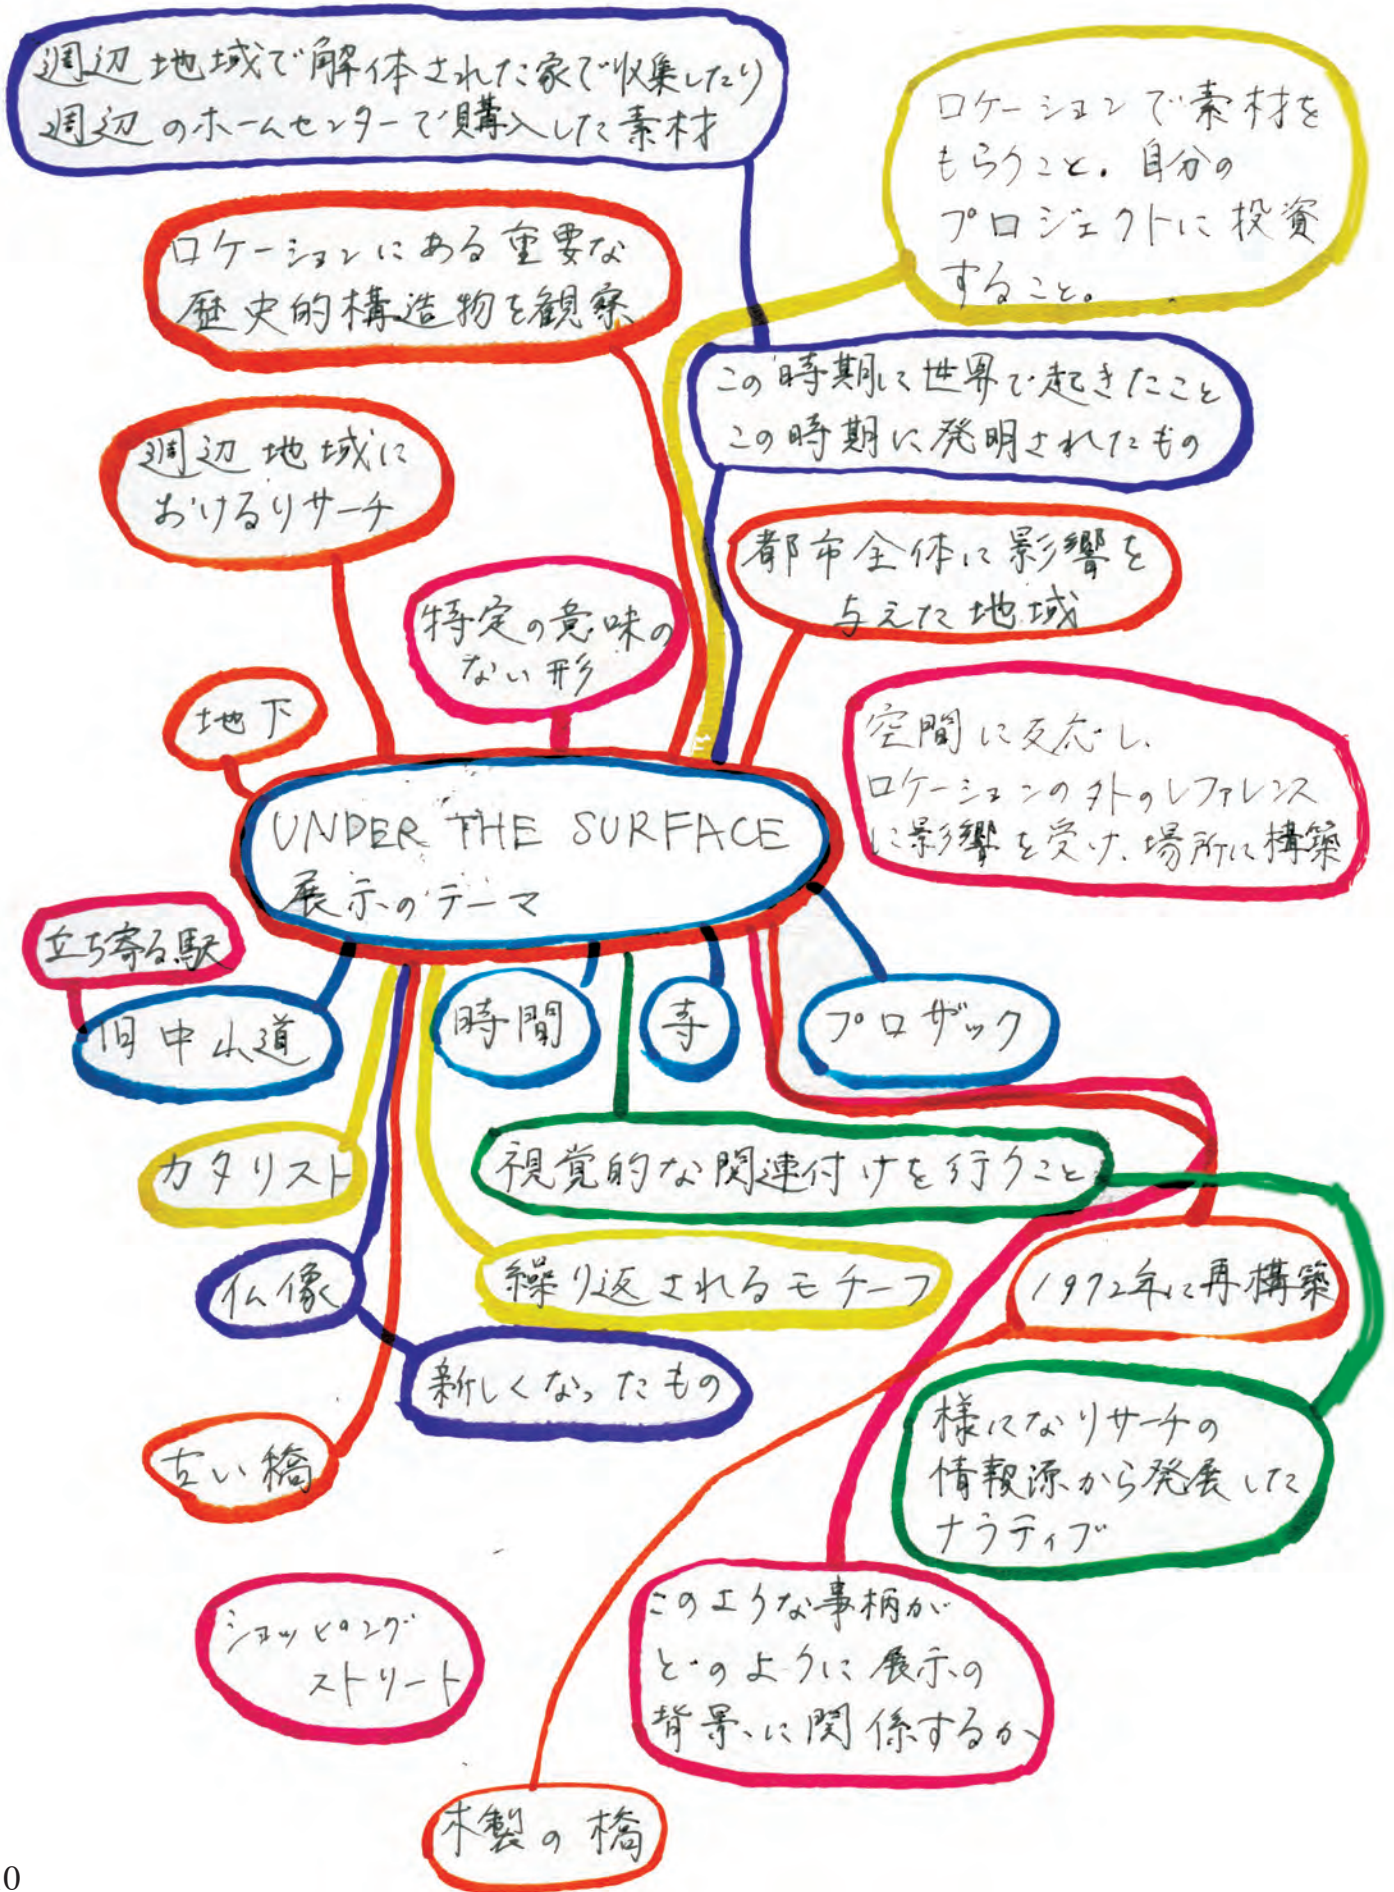 週辺地域で解体された家で収集したり
週辺のホームセンターで購入した素材
ロケーションで素材を
もらうこと。自分の
プロジェクトに投資
すること。
ロケーションにある重要な
歴史的構造物を観察
この時期に世界で起きたこと
この時期に発明されたもの
週辺地域に
おけるリサーチ
都市全体に影響を
与えた地域
特定の意味の
ない形
地下
空間に反応し、
ロケーションの外のレファレンス
に影響を受け、場所に構築
UNDER THE SURFACE
展示のテーマ
立ち寄る駅
旧中山道
時間
寺
プロザック
カタリスト
視覚的な関連付けを行うこと
仏像
繰り返されるモチーフ
1972年に再構築
新しくなったもの
様になリサーチの
情報源から発展した
ナラティブ
古い橋
ショッピング
ストリート
このような事柄が
どのように展示の
背景に関係するか
木製の橋
0